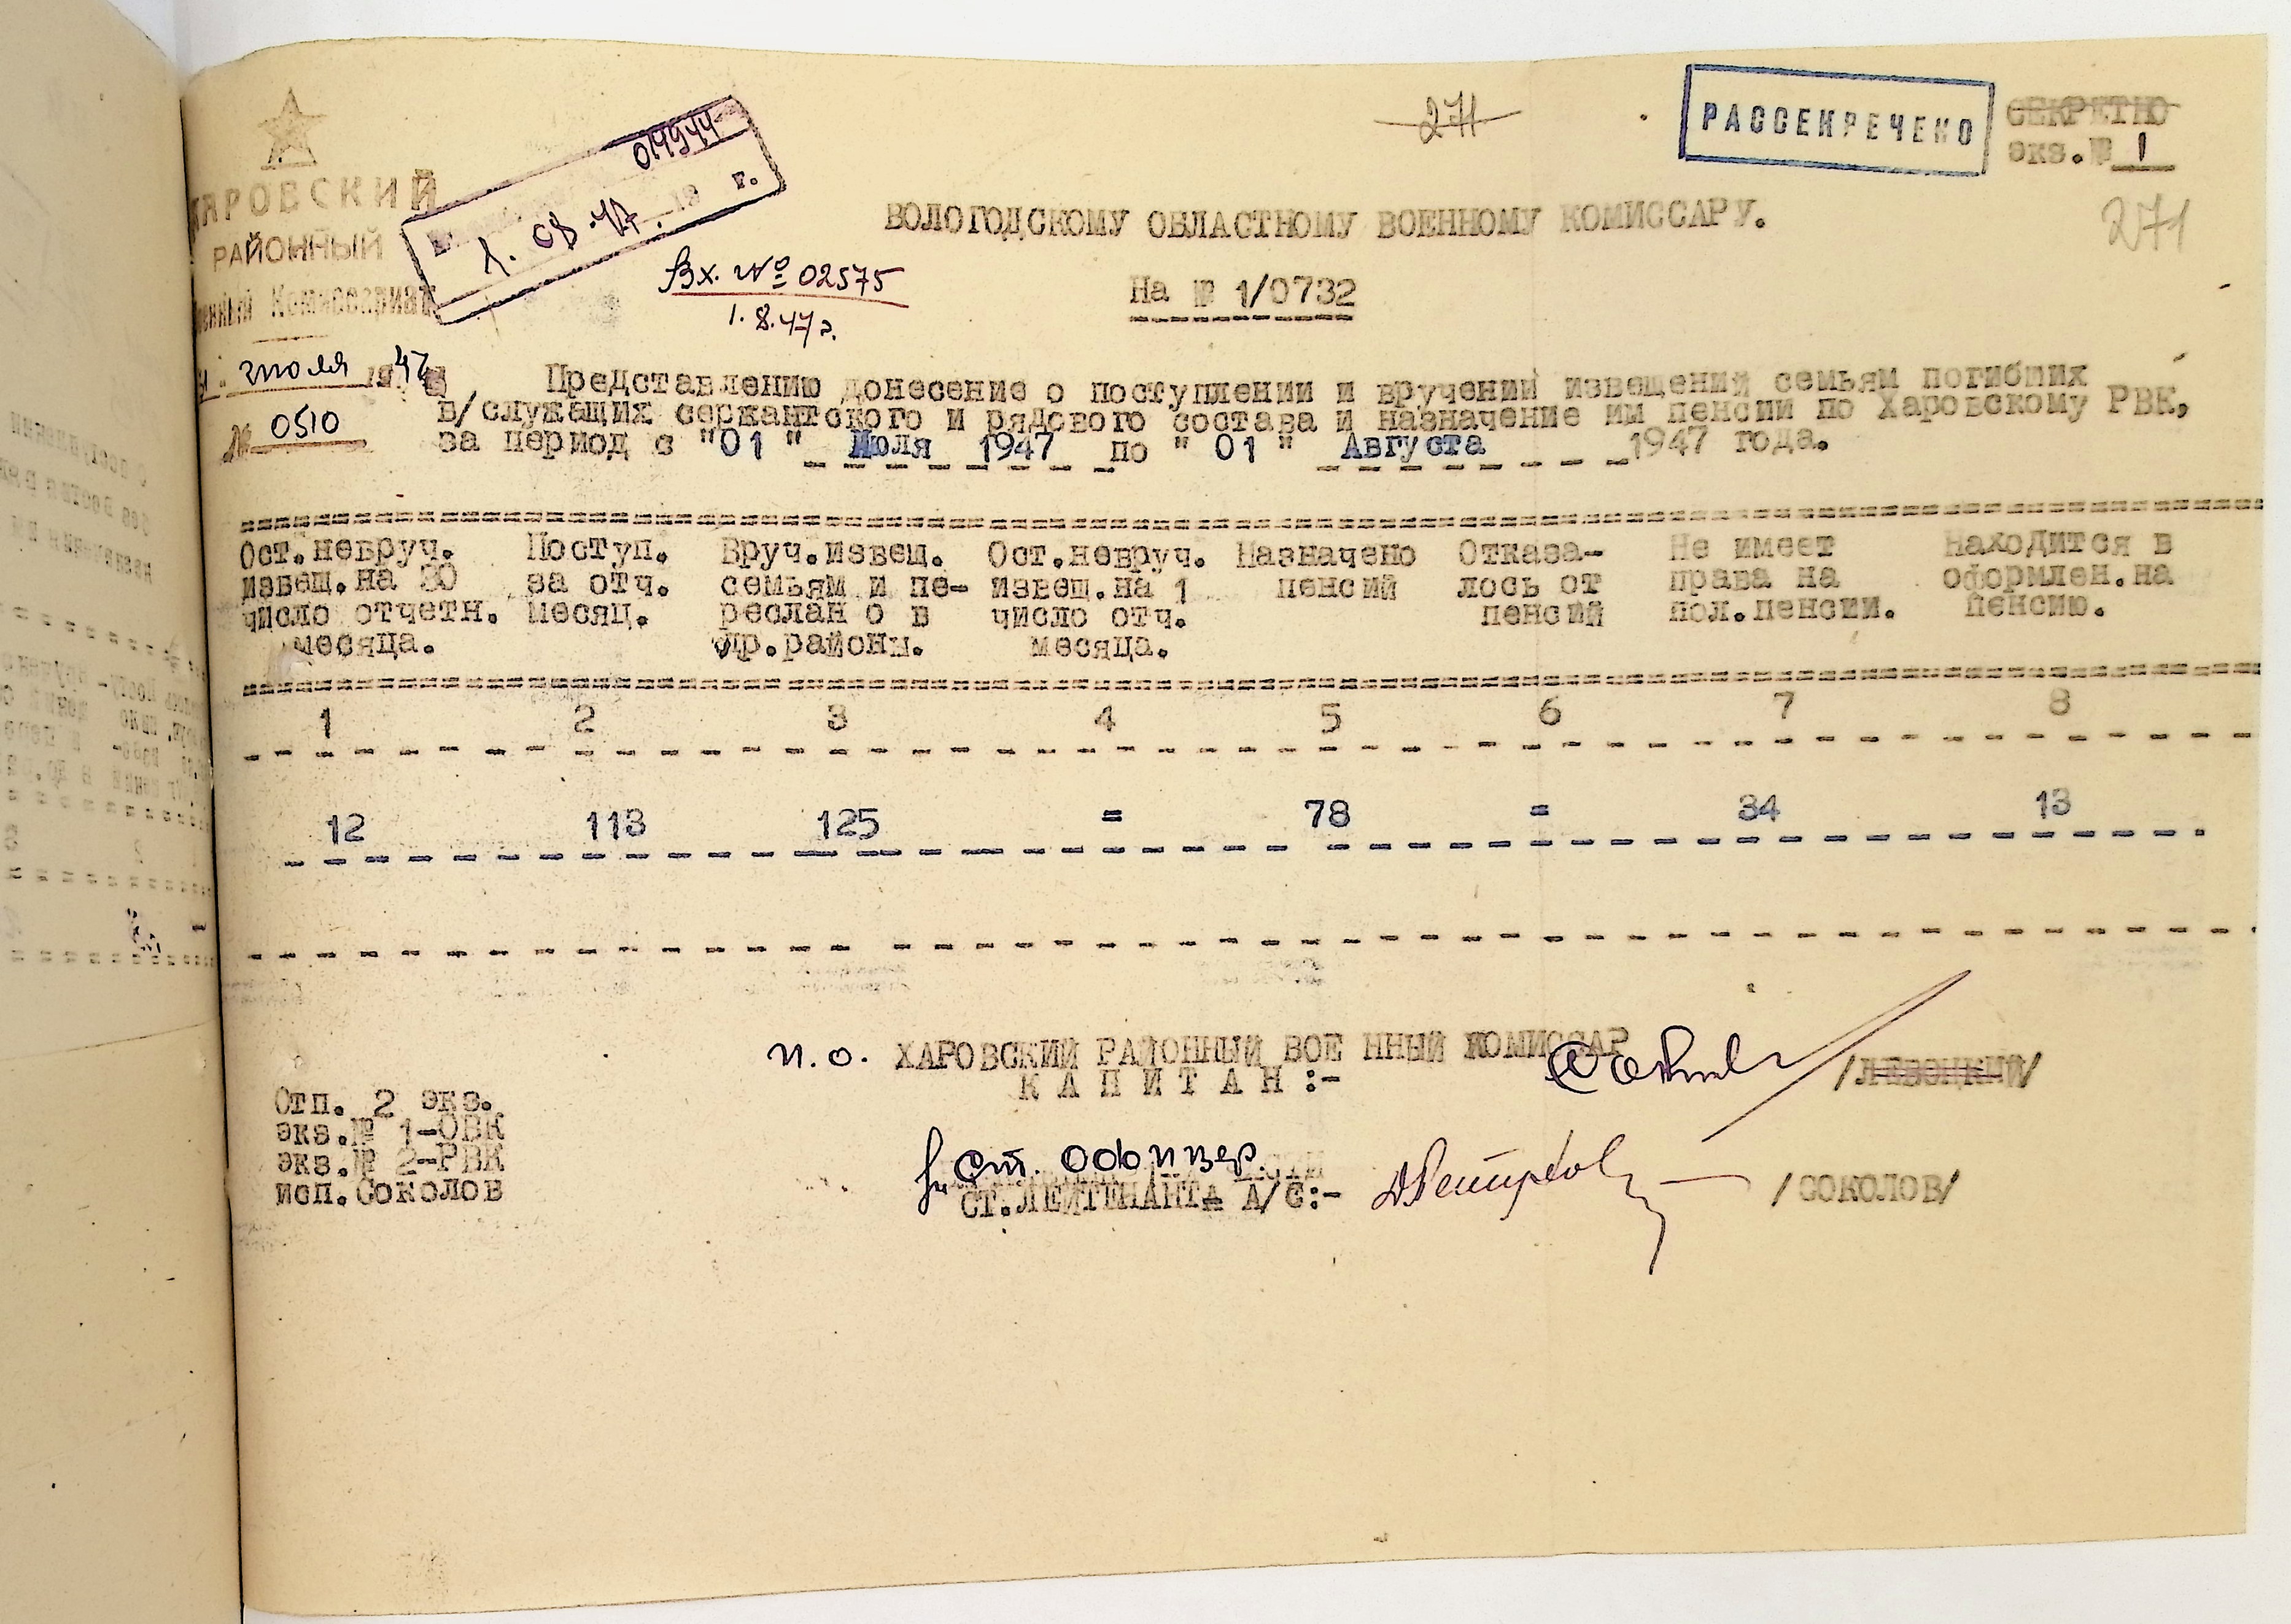 271
РАССЕКРЕЧЕНО
СЕКРЕТНО
экз.№ 1
271
ХАРОВСКИЙ
РАЙОННЫЙ
Военный Комиссариат
июля 1947
№ 0510
04944
1. 08. 47. 19 г.
Вх. № 02575
1.8.47г.
ВОЛОГОДСКОМУ ОБЛАСТНОМУ ВОЕННОМУ КОМИССАРУ.
На № 1/0732
Представлению донесение о поступлении и вручении извещений семьям погибших
в/служащих сержантского и рядового состава и назначение им пенсии по Харовскому РВК,
за период с "01 " Июля 1947 по " 01 " Августа 1947 года.
Ост.невруч. Поступ. Вруч.извещ. Ост.невруч. Назначено Отказа- Не имеет Находится в
извещ.на 30 за отч. семьям и пе- извещ.на 1 пенсий лось от права на оформлен.на
число отчетн. месяц. реслан о в число отч. пенсий пол.пенсии. пенсию.
месяца. др.районы. месяца.
1 2 3 4 5 6 7 8
12 113 125 = 78 = 34 13
и.о. ХАРОВСКИЙ РАЙОННЫЙ ВОЕ ННЫЙ КОМИССАР
К А П И Т А Н :- /ЛЕВОЦКИЙ/
Отп. 2 экз.
экз.№ 1-ОВК
экз.№ 2-РВК
исп.Соколов
Ст. Офицер.
СТ.ЛЕЙТЕНАНТ А/С:- /СОКОЛОВ/